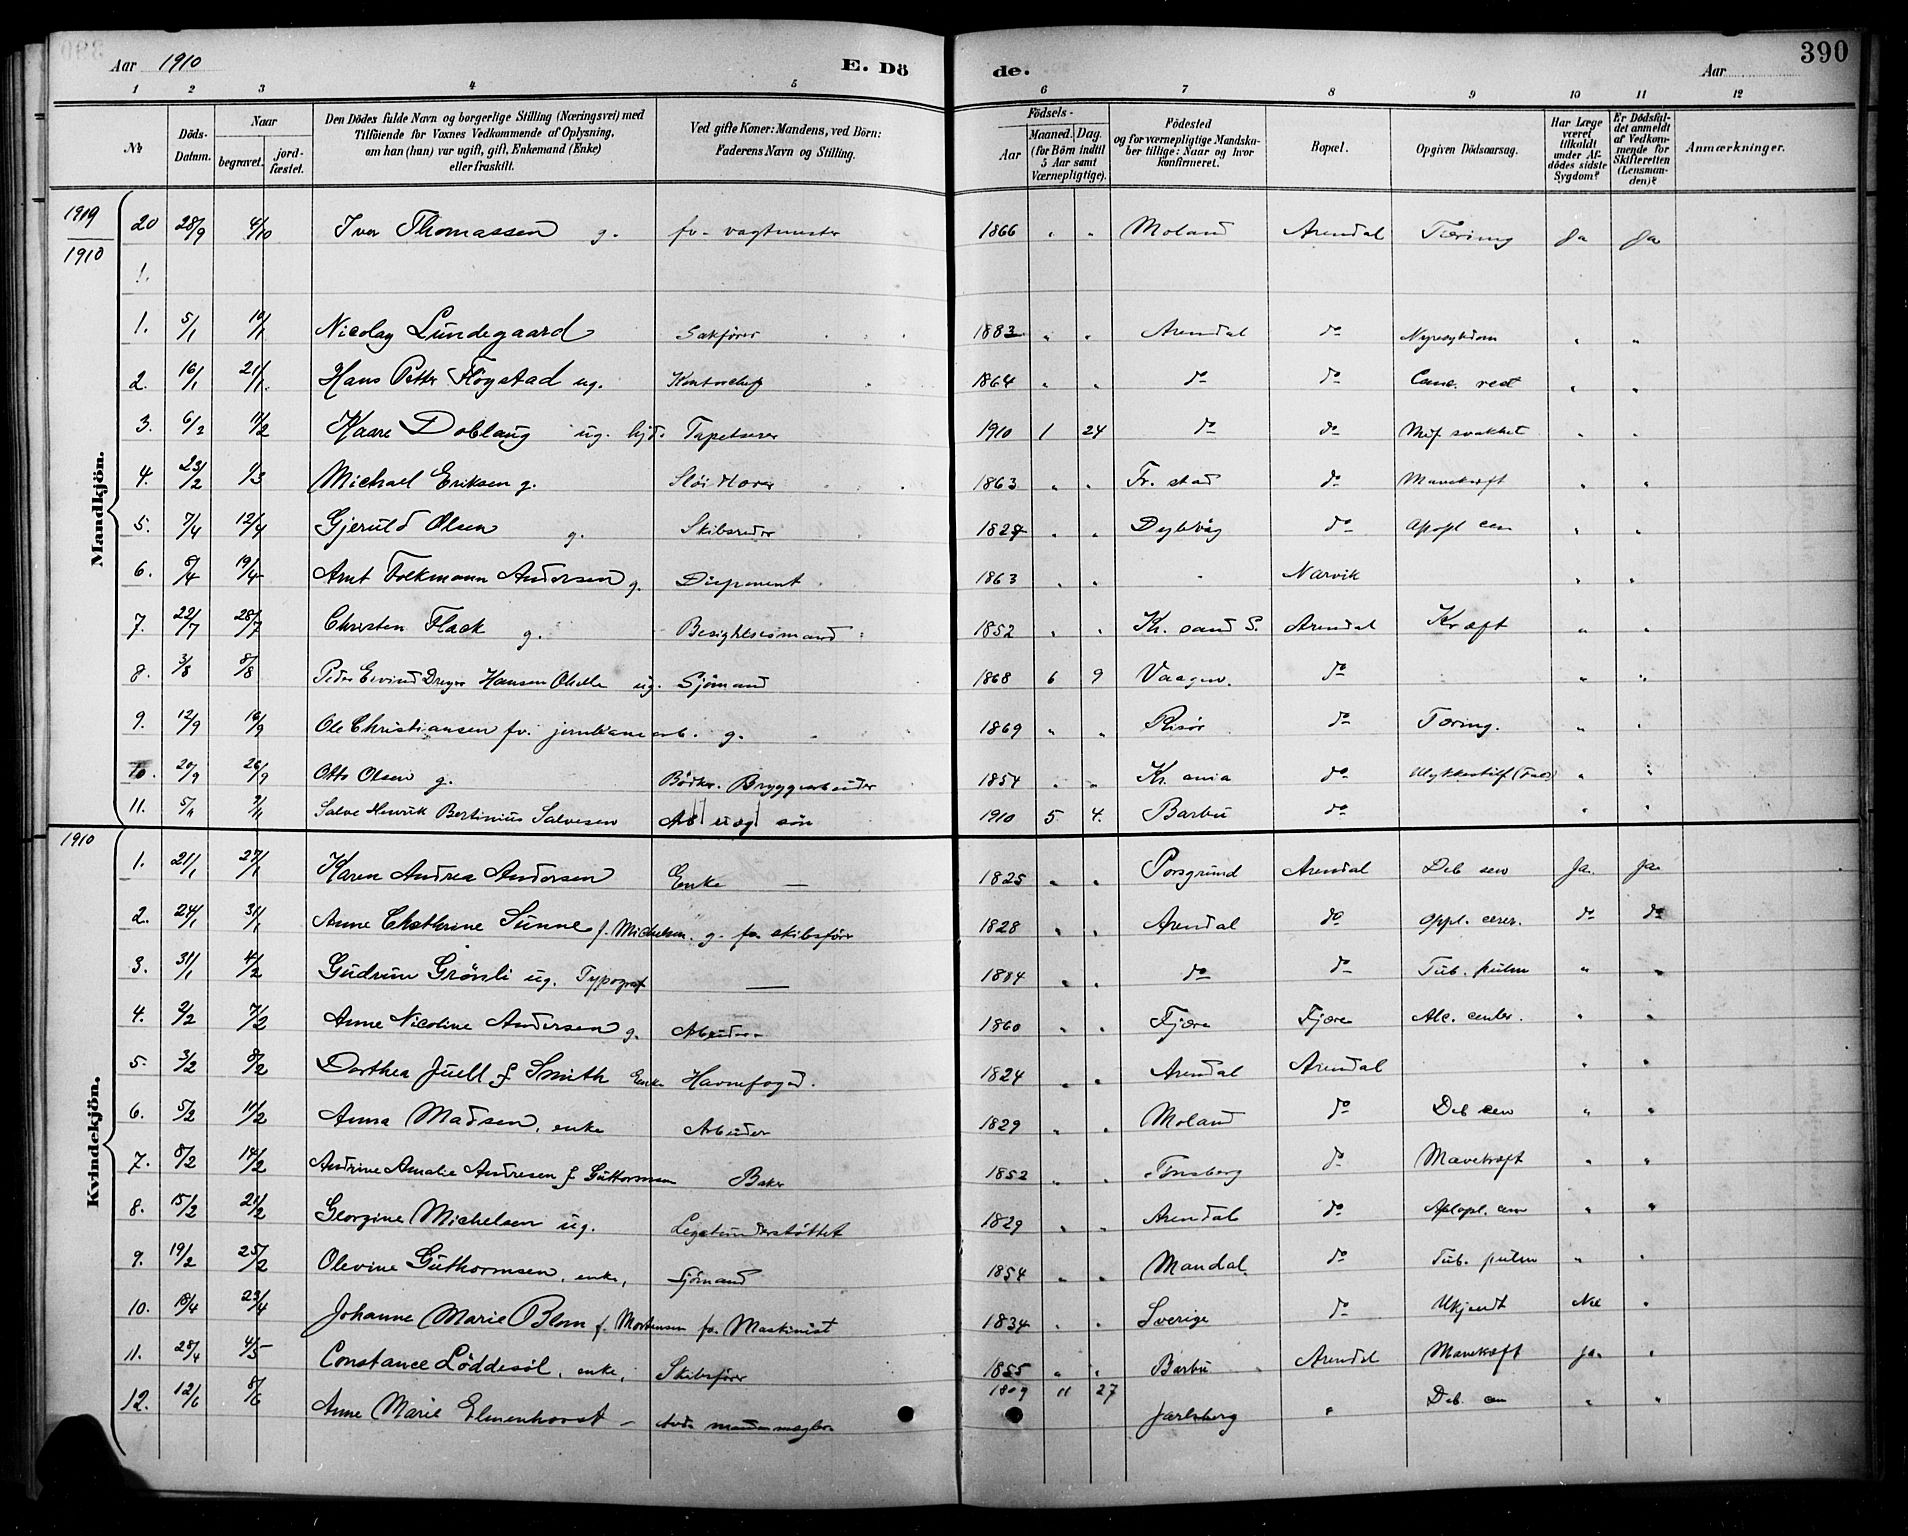 390
Aar 1910 E. Dö de. Aar
1 2 3 4 5 6 7 8 9 10 11 12
№ Döds-Datum. Naar begravet. jord-fæstet. Den Dödes fulde Navn og borgerlige Stilling (Næringsvei) med Tilföiende for Voxnes Vedkommende af Oplysning, om han (hun) var ugift, gift, Enkemand (Enke) eller fraskilt. Ved gifte Koner: Mandens, ved Börn: Faderens Navn og Stilling. Födsels- Aar Maaned. Dag. (for Börn indtil 5 Aar samt Værnepligtige). Födested og for værnepligtige Mandskaber tillige: Naar og hvor konfirmeret. Bopæl. Opgiven Dödsaarsag. Har Læge været tilkaldt under Afdödes sidste Sygdom? Er Dödsfaldet anmeldt af Vedkommende for Skifteretten (Lensmanden)? Anmærkninger.
1909
20 28/9 4/10 Iver Thomassen g. fv. vagtmester 1866 " " Moland Arendal Tæring Ja Ja
1910
1.
Mandkjön.
1. 5/1 10/1 Nicolay Lundegaard Sakfører 1883 " " Arendal do Nyresykdom " "
2. 16/1 21/1 Hans Petter Fløystad ug. Kontorchef 1864 " " do do Canc. rect " "
3. 6/2 11/2 Kaare Doblaug ug. hjd. Tapetserer 1910 1 24 do do Mdf. svakhet " "
4. 23/2 1/3 Michael Eriksen g. 1863 " " Fr. stad do Mavekræft " "
5. 7/4 12/4 Gjeruld Olsen g. Skibsreder 1827 " " Dybvåg do Apopl cer " "
6. 8/4 19/4 Arnt Folkmann Andersen g. Disponent 1863 " " " Narvik " "
7. 22/7 28/7 Christen Flack g. Besigtelsesmand 1852 " " Kr. sand S. Arendal Kræft " "
8. 3/8 8/8 Peder Eivind Dreyer Hansen ug. Sjömand 1868 6 9 Vaagen do " "
9. 12/9 16/9 Ole Christiansen fv. jernbanearb. g. 1869 " " Risör do Tæring. " "
10. 20/9 26/9 Otto Olsen g. Bödker. Bryggearbeider 1854 " " Kr. ania do Ulykkestilf (Fald) " "
11. 5/11 9/11 Salve Henrik Bertinius Salvesen Arb uæg søn 1910 5. 4. Barbu do " "
1910
Kvindekjön.
1. 21/1 27/1 Karen Andrea Andersen Enke — 1825 " " Porsgrund Arendal Deb sen Ja. Ja.
2. 24/1 31/1 Anne Chatherine Sunne f. Michelsen. g. fv. skibsförer 1828 " " Arendal do Appl. cerer. do do
3. 31/1 4/2 Gudrun Grönli ug. Typograf — 1884 " " do do Tub. pulm " "
4. 2/2 7/2 Anne Nicoline Andersen g. Arbeider 1860 " " Fjære Fjære " "
5. 3/2 8/2 Dorthea Juell f Smith Enke Havnefoged. 1824 " " Arendal Arendal " "
6. 5/2 11/2 Anna Madsen, enke Arbeider 1829 " " Moland do Deb sen " "
7. 8/2 14/2 Andrine Amalie Andresen f Guttormsen Baker 1852 " " Tønsberg do Mavekræft " "
8. 15/2 21/2 Georgine Michelsen ug. Legatunderstøttet 1829 " " Arendal do Aplopl. cer " "
9. 19/2 25/2 Olevine Guthormsen, enke, Sjömand 1854 " " Mandal. do Tub. pulm " "
10. 18/4 23/4 Johanne Marie Blom f. Mortensen fv. Maskinist 1834 " " Sverige do Ukjendt Nei "
11. 28/4 4/5 Constance Löddesöl, enke, Skibsförer 1855 " " Barbu Arendal Mavekræft Ja. "
12. 12/6 8/6 Anne Marie Elmenhorst — 1809 11 27 Jarlsberg " Deb. sen " "